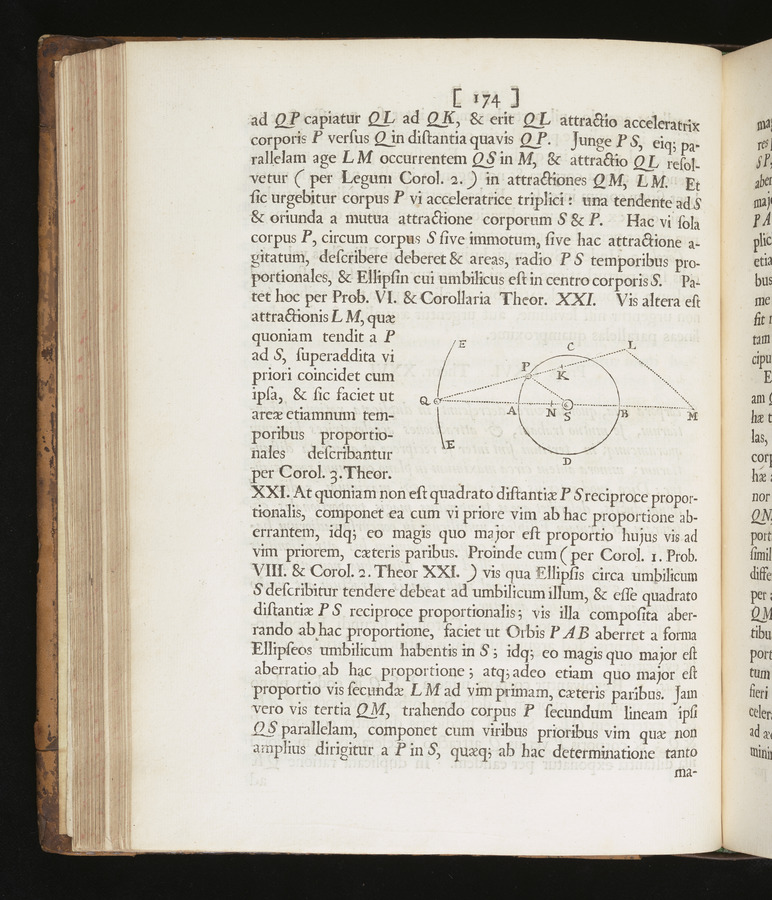 [ 174 ]
ad QP capiatur QL ad QK, & erit QL attractio acceleratrix
corporis P versus Q in distantia quavis QP. Junge PS, eiq; pa-
rallelam age LM occurrentem QS in M, & attractio QL resol-
vetur ( per Legum Corol. 2. ) in attractiones QM, LM. Et
sic urgebitur corpus P vi acceleratrice triplici: una tendente ad S
& oriunda a mutua attractione corporum S & P. Hac vi sola
corpus P, circum corpus S sive immotum, sive hac attractione a-
gitatum, describere deberet & areas, radio PS temporibus pro-
portionales, & Ellipsin cui umbilicus est in centro corporis S. Pa-
tet hoc per Prob. VI. & Corollaria Theor. XXI. Vis altera est
attractionis LM, quæ
quoniam tendit a P
ad S, superaddita vi
priori coincidet cum
ipsa, & sic faciet ut
areæ etiamnum tem-
poribus proportio-
nales describantur
per Corol. 3. Theor.
E
C
L
P
K
Q
A
N
S
B
M
E
D
XXI. At quoniam non est quadrato distantiæ PS reciproce propor-
tionalis, componet ea cum vi priore vim ab hac proportione ab-
errantem, idq; eo magis quo major est proportio hujus vis ad
vim priorem, cæteris paribus. Proinde cum ( per Corol. 1. Prob.
VIII. & Corol. 2. Theor XXI. ) vis qua Ellipsis circa umbilicum
S describitur tendere debeat ad umbilicum illum, & esse quadrato
distantiæ PS reciproce proportionalis; vis illa composita aber-
rando ab hac proportione, faciet ut Orbis PAB aberret a forma
Ellipseos umbilicum habentis in S; idq; eo magis quo major est
aberratio ab hac proportione; atq; adeo etiam quo major est
proportio vis secundæ LM ad vim primam, cæteris paribus. Jam
vero vis tertia QM, trahendo corpus P secundum lineam ipsi
QS parallelam, componet cum viribus prioribus vim quæ non
amplius dirigitur a P in S, quæq; ab hac determinatione tanto
ma-